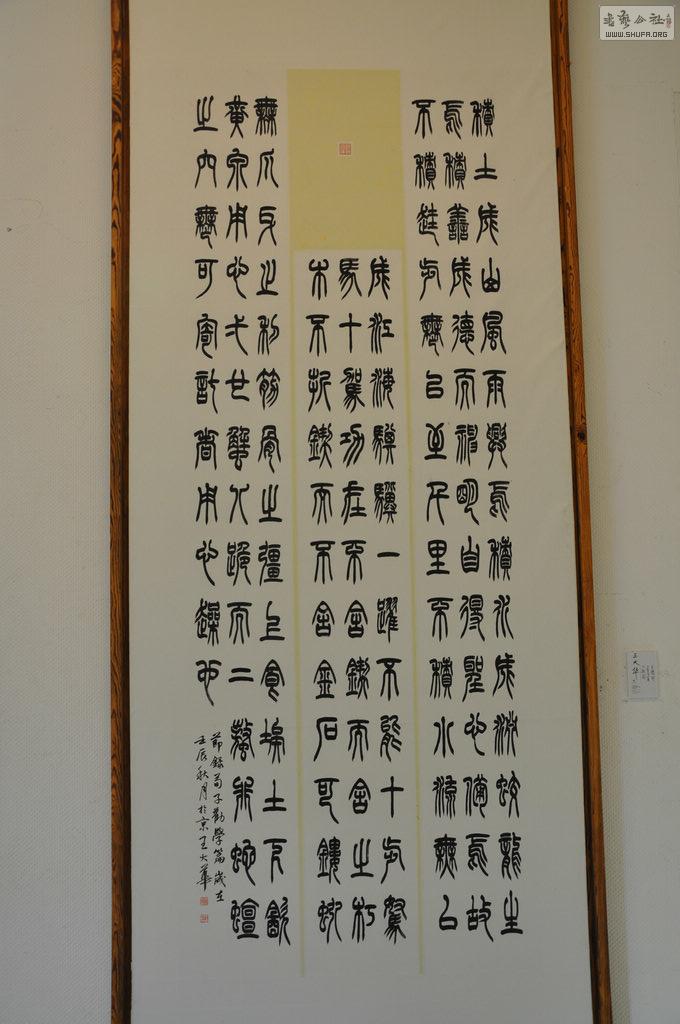 積土成山風雨興焉積水成淵蛟龍生
焉積善成德而神明自得聖心備焉故
不積跬步無以至千里不積小流無以
成江海騏驥一躍不能十步駑
馬十駕功在不舍鍥而舍之朽
木不折鍥而不舍金石可鏤蚓
無爪牙之利筋骨之彊上食埃土下飲
黃泉用心弌也蟹八跪而二螯非蛇蟺
之穴無可寄託者用心躁也
節錄荀子勸學篇歲在
壬辰秋月於京王大華
书艺公社
WWW.SHUFA.ORG